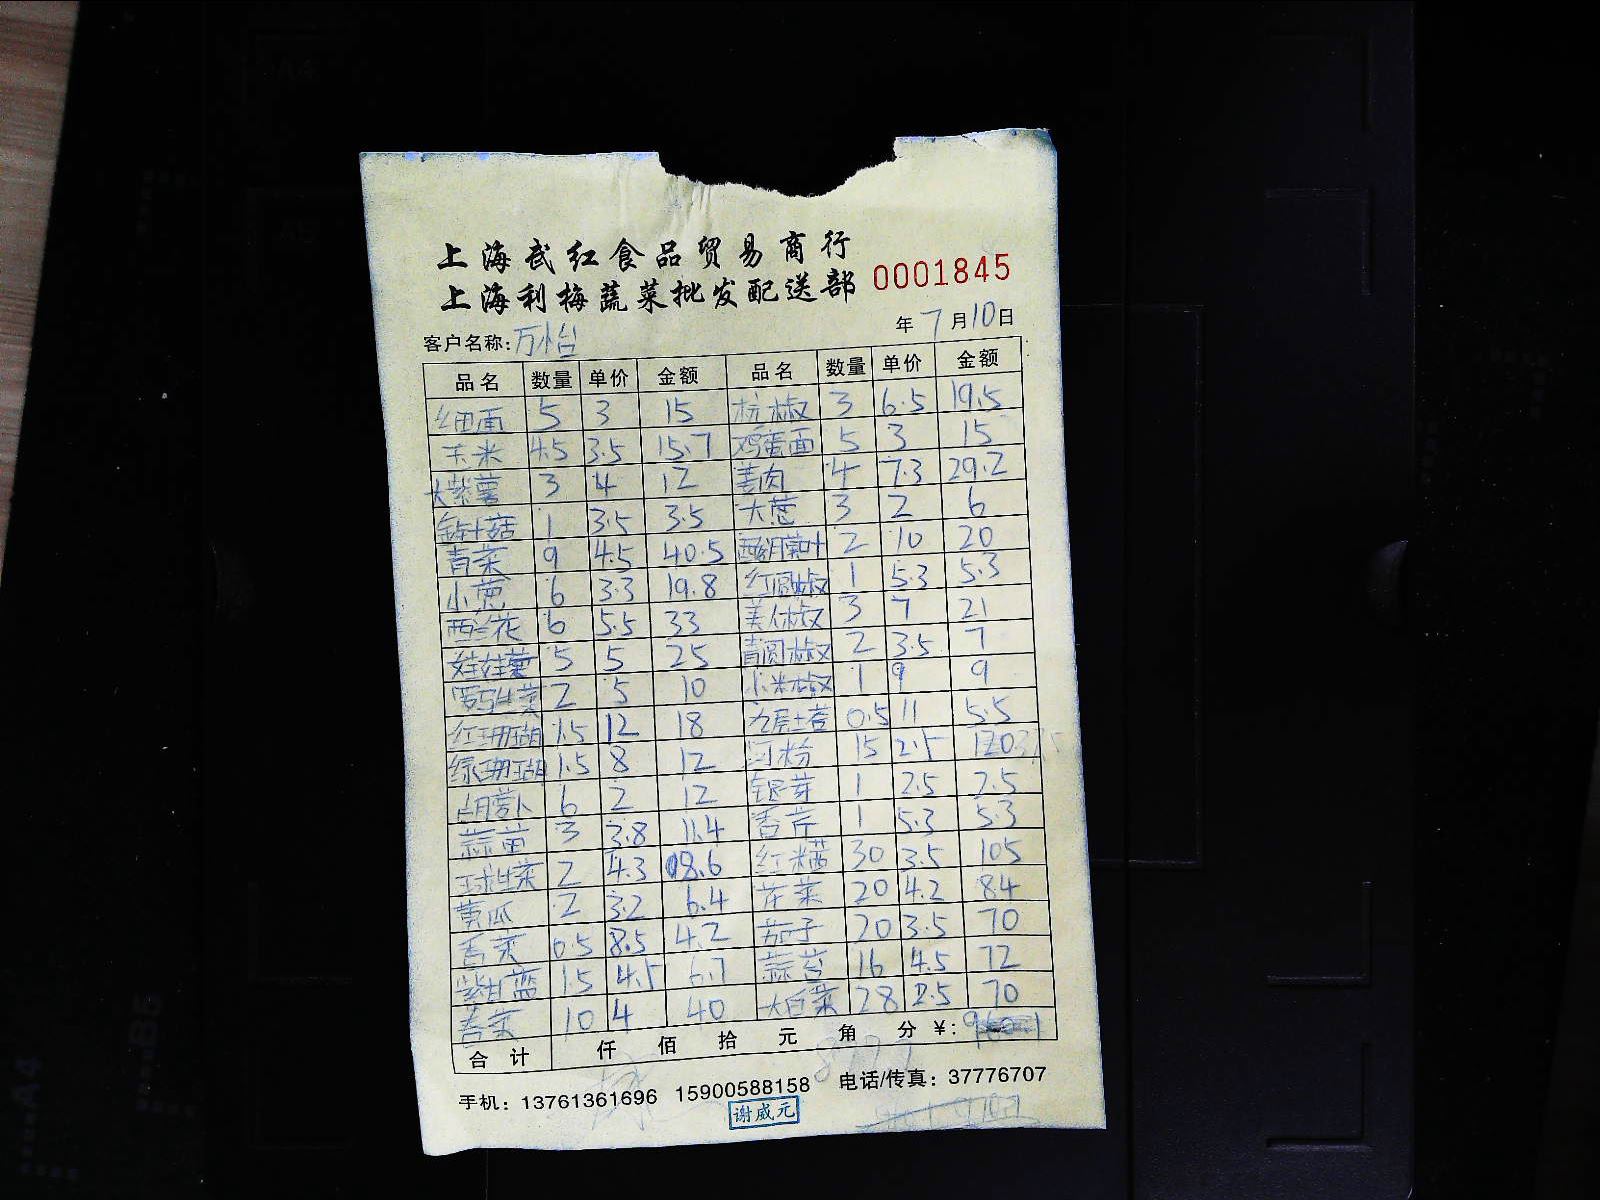 上海武红食品贸易商行
上海利梅蔬菜批发配送部 0001845
客户名称:万怡 年7月10日
品名 数量 单价 金额 品名 数量 单价 金额
细面 5 3 15 杭椒 3 6.5 19.5
玉米 4.5 3.5 15.7 鸡蛋面 5 3 15
大紫薯 3 4 12 姜肉 4 7.3 29.2
金针菇 1 3.5 3.5 大葱 3 2 6
青菜 9 4.5 40.5 2 10 20
小葱 6 3.3 19.8 红圆椒 1 5.3 5.3
西兰花 6 5.5 33 美人椒 3 7 21
娃娃菜 5 5 25 青圆椒 2 3.5 7
罗马生菜 2 5 10 小米椒 1 9 9
红珊瑚 1.5 12 18 九层塔 0.5 11 5.5
绿珊瑚 1.5 8 12 河粉 15 2.5
胡萝卜 6 2 12 银芽 1 2.5 2.5
蒜苗 3 3.8 11.4 香芹 1 5.3 5.3
球生菜 2 4.3 8.6 红米苋 30 3.5 105
黄瓜 2 3.2 6.4 花菜 20 4.2 84
香菜 0.5 8.5 4.2 茄子 20 3.5 70
紫甘蓝 1.5 4.5 6.7 蒜苔 16 4.5 72
10 4 40 大白菜 28 2.5 70
合计 仟 佰 拾 元 角 分 ¥:
手机: 13761361696 15900588158 电话/传真: 37776707
谢威元